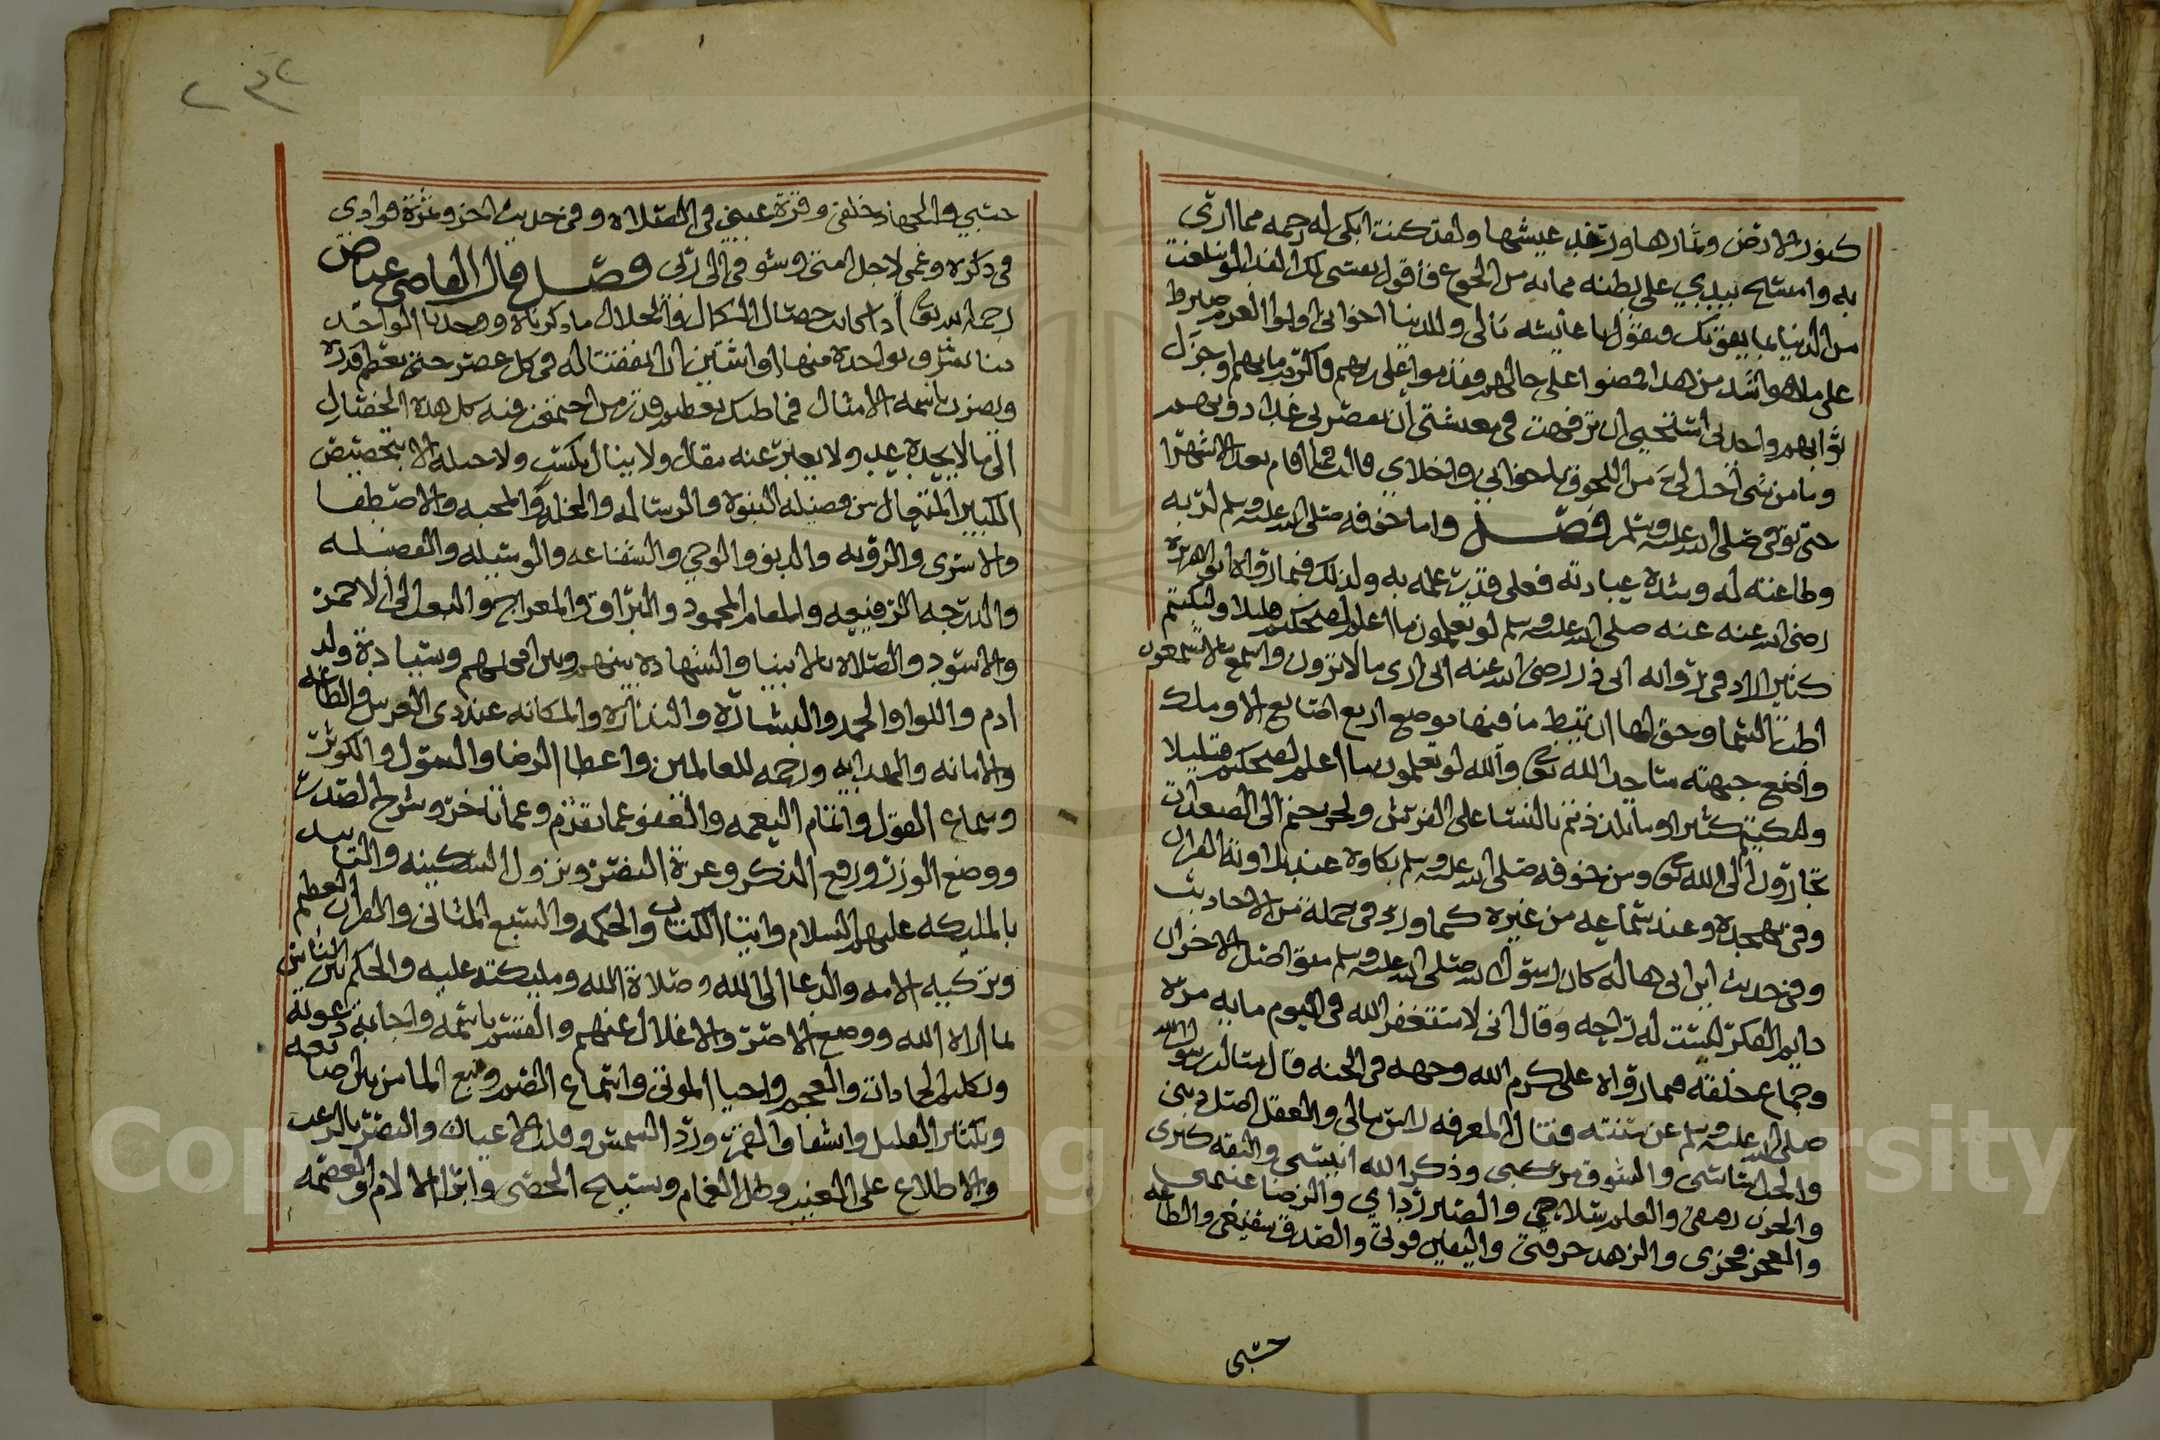 كنوز الارض وثمارها ورغد عيشها ولقد كنت ابكى له رحمه مما ارى
به وامسح بيدي على بطنه مما به من الجوع فأقول نفسى لك الفدا لو تبلغت
من الدنيا بما يقوتك فيقول يا عائشه مالى وللدنيا اخوانى اولوا العزم صبروا
على ما هو اشد من هذا فمضوا على حالهم فقدموا على ربهم فاكرم مابهم واجزل
ثوابهم واجدنى استحيى ان ترفهت فى معيشتى ان يقصر بى غدا دونهم
وما من شى احب الىّ من اللحوق باخوانى واخلاي قالت فما اقام بعد الا شهرا
حتى توفى صلى الله عليه وسلم فصل واما خوفه صلى الله عليه وسلم لربه
وطاعته له وشدة عبادته فعلى قدر علمه به ولذلك فيما رواه ابو هريرة
رضى الله عنه عنه صلى الله عليه وسلم لو تعلمون ما اعلم لضحكتم قليلا ولبكيتم
كثيرا زاد فى رواية ابى ذر رضى الله عنه انى ارى مالا ترون واسمع مالا تسمعون
اطت السما وحق لها ان تئط ما فيها موضع اربع اصابع الا وملك
واضع جبهته ساجدا لله تعالى والله لو تعلمون ما اعلم لضحكتم قليلا
ولبكيتم كثيرا وما تلذذتم بالنسا على الفرش ولخرجتم الى الصعدات
تجارون الى الله تعالى ومن خوفه صلى الله عليه وسلم بكاوه عند تلاوته القران
وفى تهجده وعند سماعه من غيره كما ورد فى جملة من الاحاديث
وفى حديث ابن ابى هاله كان رسول الله صلى الله عليه وسلم متواصل الاحزان
دايم الفكر ليست له راحه وقال انى لاستغفر الله فى اليوم مايه مرة
وجماع خلقه فيما رواه على كرم الله وجهه فى الجنه قال سالت رسول الله
صلى الله عليه وسلم عن سنته فقال المعرفه راس مالى والعقل اصل دينى
والحب اساسى والشوق مركبى وذكر الله انيسى والثقه كنزى
والحزن رفيقى والعلم سلاحي والصبر ردايي والرضا غنيمى
والعجز فخرى والزهد حرفتى واليقين قوتى والصدق شفيعى والطاعه
حسبى
٢٣٢
حسبي والجهاد خلقى وقرة عينى فى الصلاة وفى حديث اخر وثمرة فوادي
فى ذكره وغمى لاجل امتى وشوقى الى ربى فصل قال القاضى عياض
رحمه الله تعالى اذا كانت خصال الكمال والجلال ما ذكرناه ووجدنا الواحد
منا يشرف بواحدة منها او اثنتين ان اتفقت له فى كل عصر حتى يعظم قدره
ويضرب باسمه الامثال فما ظنك بعظيم قدر من اجتمعت فيه كل هذه الخصال
الى مالا يحده عد ولا يعبر عنه مقال ولا ينال بكسب ولا حيله الا بتخصيص
الكبير المتعال من فضيله النبوة والرساله والخله والمحبه والاصطفا
والاسرى والرؤيه والدنو والوحي والشفاعه والوسيله والفضيله
والدرجه الرفيعه والمقام المحمود والبراق والمعراج والبعث الى الاحمر
والاسود والصلاة بالانبيا والشهادة بينهم وبين اممهم وسيادة ولد
ادم واللوا والحمد والبشارة والنذارة والمكانه عند ذى العرش والطاعه
والامانه والهدايه ورحمه للعالمين واعطا الرضا والسؤل والكوثر
وسماع القول واتمام النعمه والعفو عما تقدم وعما تاخر وشرح الصدر
ووضع الوزر ورفع الذكر وعزة النصر ونزول السكينه والتاييد
بالمليكه عليهم السلام وايتا الكتاب والحكمه والسبع المثانى والقران العظيم
وتزكيه الامه والدعا الى الله وصلاة الله ومليكته عليه والحكم بين الناس
بما اراه الله ووضع الاصر والاغلال عنهم والقسم باسمه واجابة دعوته
وتكليم الجمادات والعجم واحيا الموتى واسماع الصم ونبع الما من بين اصابعه
وتكثير القليل وانشقاق القمر ورد الشمس وقلب الاعيان والنصر بالرعب
والاطلاع على الغيب وظل الغمام وتسبيح الحصى وابرا الالام والعصمه